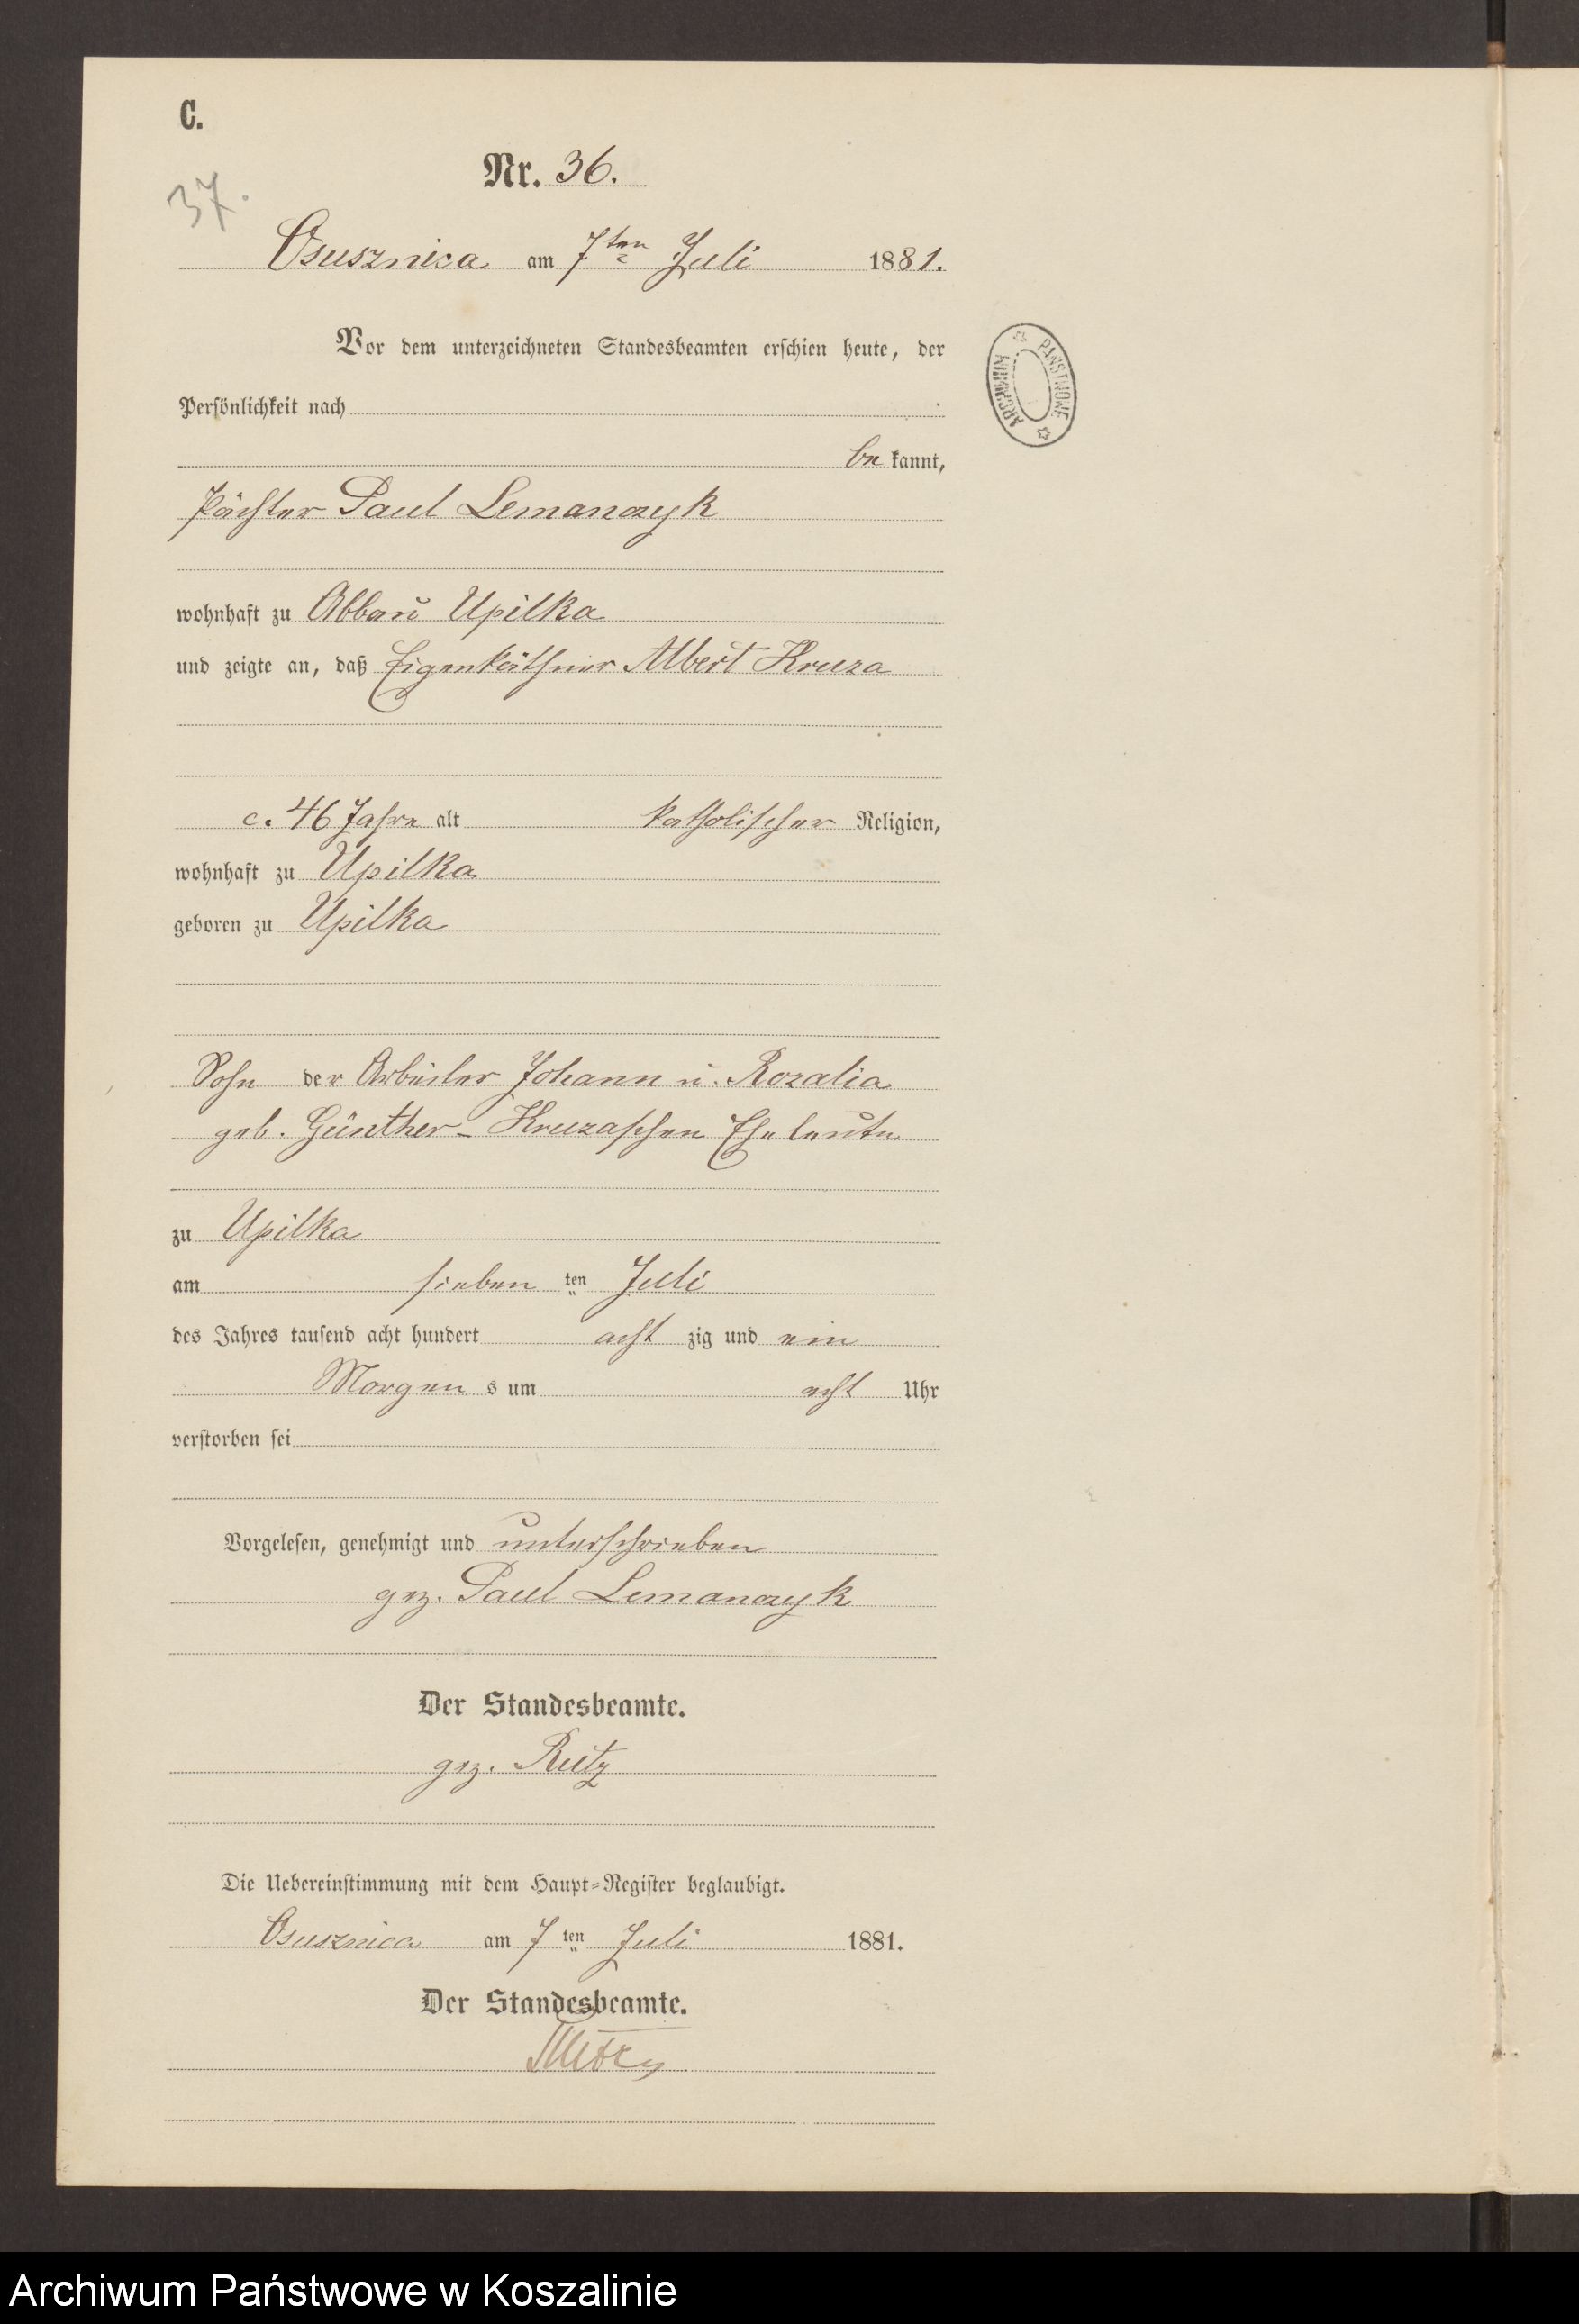 C.
Nr. 36.
37.
Osusznica am 7ten Juli 1881.
Vor dem unterzeichneten Standesbeamten erschien heute, der
Persönlichkeit nach
be kannt,
Pächter Paul Lemanczyk
wohnhaft zu Abbau Upilka
und zeigte an, daß Eigenkäthner Albert Kruza
c. 46 Jahre alt katholischer Religion,
wohnhaft zu Upilka
geboren zu Upilka
Sohn der Arbeiter Johann u. Rozalia
geb. Günther- Kruzaschen Eheleute
zu Upilka
am sieben ten Juli
des Jahres tausend acht hundert acht zig und ein
Morgen s um acht Uhr
verstorben sei
Vorgelesen, genehmigt und unterschrieben
gez. Paul Lemanczyk
Der Standesbeamte.
gez. Rutz
Die Uebereinstimmung mit dem Haupt-Register beglaubigt.
Osusznica am 7 ten Juli 1881.
Der Standesbeamte.
ARCHIWUM PAŃSTWOWE
Archiwum Państwowe w Koszalinie